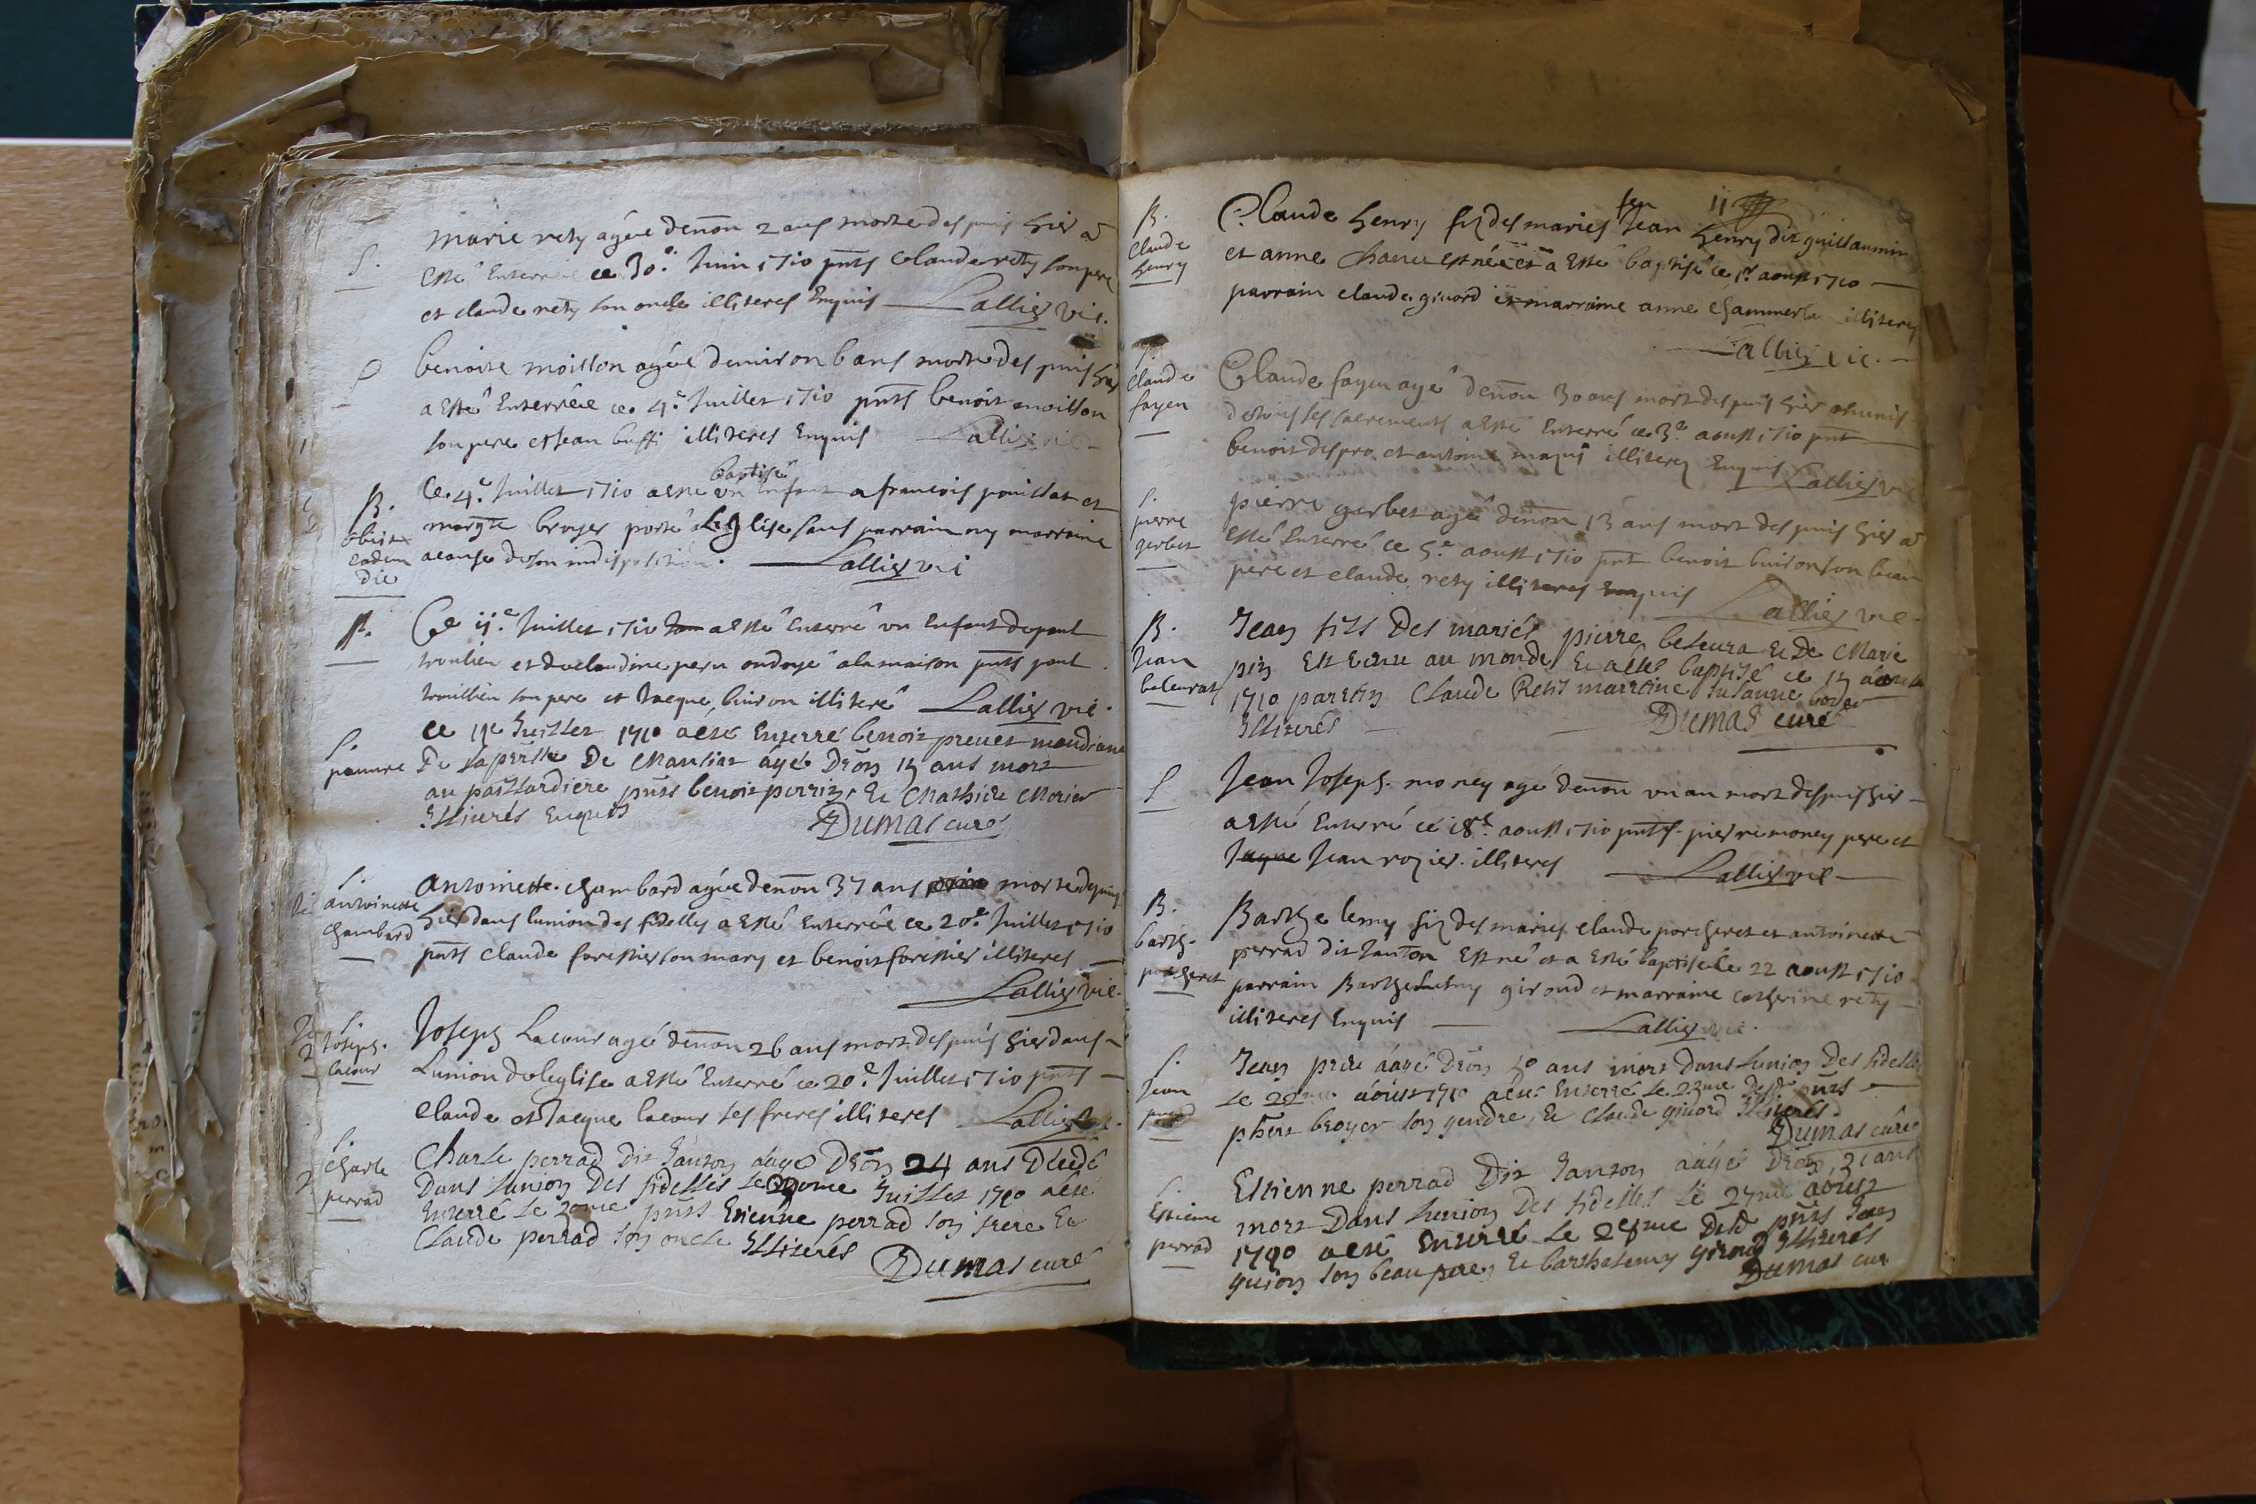 S.
marie rety agée denõn 2 ans morte despuis hier a
esté enterrée ce 30e. Juin 1710 pñts Claude rety son pere
et claude rety son oncle illiteres enquis Lallier vic.
S
benoite moisson agée denviron 6 ans morte despuis hier
a esté enterrée ce 4e. Juillet 1710 pnts benoit moisson
son pere et Jean buffi illiteres enquis Lallier vic
B.
obiit
eadem
die
baptisé
Ce 4e. Juillet 1710 a esté un enfant a francois pouillat et
margte broyer porté a Leglise sans parrain ny marraine
a cause de son indisposition. Lallier vi
B.
Ce 11e. Juillet 1710 a esté enterré un enfant de paul
trouilieu et de claudine peru ondoyé a la maison pnts paul
trouillieu son pere et Jacque buiron illiteré Lallier vic.
S.
pauure
ce 11e Juillet 1710 a esté Enterré benoit preuet mendiant
De la pësse De Marliat agé Dẽõn 15 ans mort
au paillardiere pñts benoit perrin Et Mathieu Morier
Illiterés Enquis Dumas curé
S.
antoinette
chambard
antoinette chambard agée denõn 37 ans morte depuis
hier dans lunion des fidelles a esté enterrée ce 20e. Juillet 1710
pñts claude forestier son mary et benoit forestier illiteres
Lallier vic.
S.
Joseph
lacour
2
Joseph Lacour agé denõn 26 ans mort despuis hier dans
Lunion de leglise a esté enterré ce 20e. Juillet 1710 pnts
claude et Jacque lacour ses freres illiteres Lallier
S.
charle
perrad
2
Charle perrad Dit Janton aagé Dẽõn 24 ans Décédé
Dans Lunion Des fidelles Le Juillet 1710 a esté
Enterré Le 20me pñts Etienne perrad son frere Et
Claude perrad son oncle Illiterés Dumas curé
11
B.
claude
henry
feu
Claude henry fiz des mariés Jean henry dit guillaumin
et anne Chanu est né et a esté baptisé ce 1er aoust 1710
parrain claude giuord et marraine anne illiteres
Lallier vic.
S.
claude
fayen
Claude fayen agé denõn 30 ans mort despuis hier munis
de tous ses sacrements a esté enterré ce 3e aoust 1710 pnt
benoit despra et antoine illiteres enquis Lallier vic
S.
pierre
gerbet
pierre gerbet agé denõn 13 ans mort despuis hier a
esté enterré ce 5e. aoust 1710 pnt benoit buiron son beau
pere et claude rety illiteres enquis Lallier vic.
B.
Jean
beleurat
Jean fils Des mariés pierre beleura Et De Marie
pin Est Venu au monde Et a Esté baptisé ce 15 aoust
1710 parrein Claude Retis marreine Susanne
Illiterés Dumas curé
S
Jean Joseph money agé denõn un an mort despuis hier
a esté enterré ce 18e. aoust 1710 pnts pierre money pere et
Jaque Jean rozier illiteres Lallier vic
B.
barth.
porcheret
Barthelemy fiz des mariés claude porcheret et antoinette
perrad dit Janton est né et a esté baptisé le 22 aoust 1710
parrain Barthelemy giroud et marraine catherine rety
illiteres enquis Lallier vic.
S.
Jean
Jean aagé Dẽõn 50 ans mort Dans Lunion Des fidelles
Le 22me aoust 1710 a esté Enterré Le 23me Dud pñts
phert broyer son gendre Et Claude giuord Illiterés
Dumas curé
S.
Estienne
perrad
Estienne perrad Dit Janton aagé Dẽõn 31 ans
mort Dans Lunion Des fidelles Le 27me aoust
1710 a esté Enterré Le 28me Dud pñts Jean
guion son beau pere Et barthelemy giroud Illiterés
Dumas cur